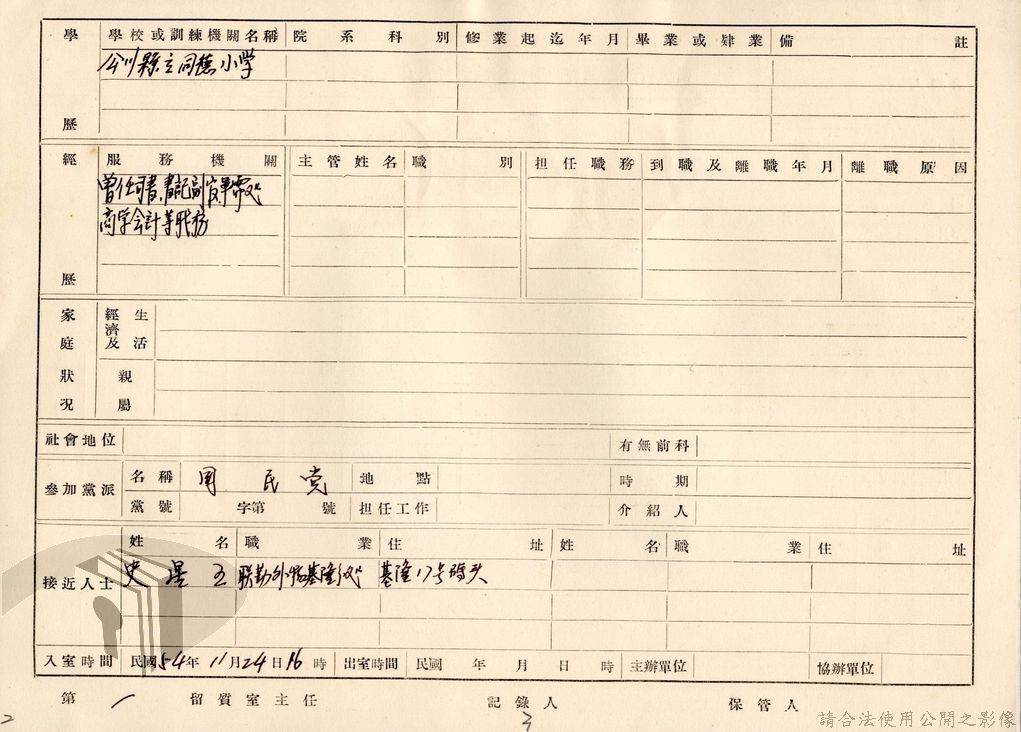 學歷 學校或訓練機關名稱 院系科別 修業起迄年月 畢業或肄業 備註
縣立同德小学
經歷 服務機關 主管姓名 職別 担任職務 到職及離職年月 離職原因
曾任司書.書記副官軍需
商学会計等職務
家庭狀況 經濟及生活
親屬
社會地位 有無前科
參加黨派 名稱 国民党 地點 時期
黨號 字第 號 担任工作 介紹人
接近人士 姓名 職業 住址 姓名 職業 住址
史星五 联勤外 基隆 基隆17号碼头
入室時間 民國54年11月24日16時 出室時間 民國 年 月 日 時 主辦單位 協辦單位
第一留質室主任 記錄人 保管人
2 3
請合法使用公開之影像